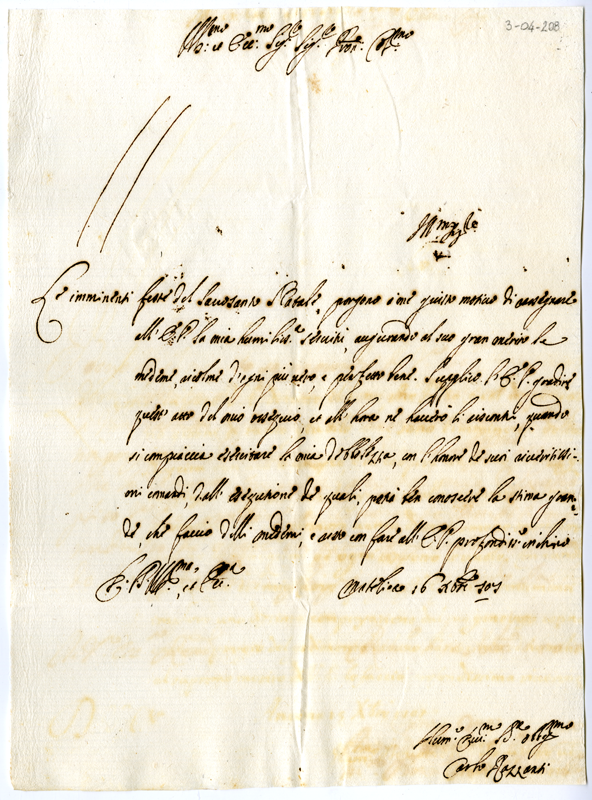 3-04-208
Ill.mo et Ecc.mo Sig.re Sig.re Pron. Col.mo
Le imminenti feste del Sacrosanto Natale, porgono à me giusto motivo di rassegnare
all'E.V. la mia humiliss.a servitù, augurando al suo gran merito le
medeme, ricolme d'ogni più vero, e perfetto bene. Supplico l'E.V. gradire
questo atto del mio ossequio, et all'hora ne haverò li riscontri, quando
si compiaccia esercitare la mia debbolezza, con l'honore de suoi riveritissi-
mi comandi, dall'esecuzione de quali, potrà ben conoscere la stima gran-
de, che faccio delli medemi, e resto con fare all'E.V. profondiss.o inchino
D. V. Ill.ma, et Ecc.ma
Matelica 16 Xbre 701
Hum.o Div.mo Se.re obblig.mo
Carlo Pezzanti